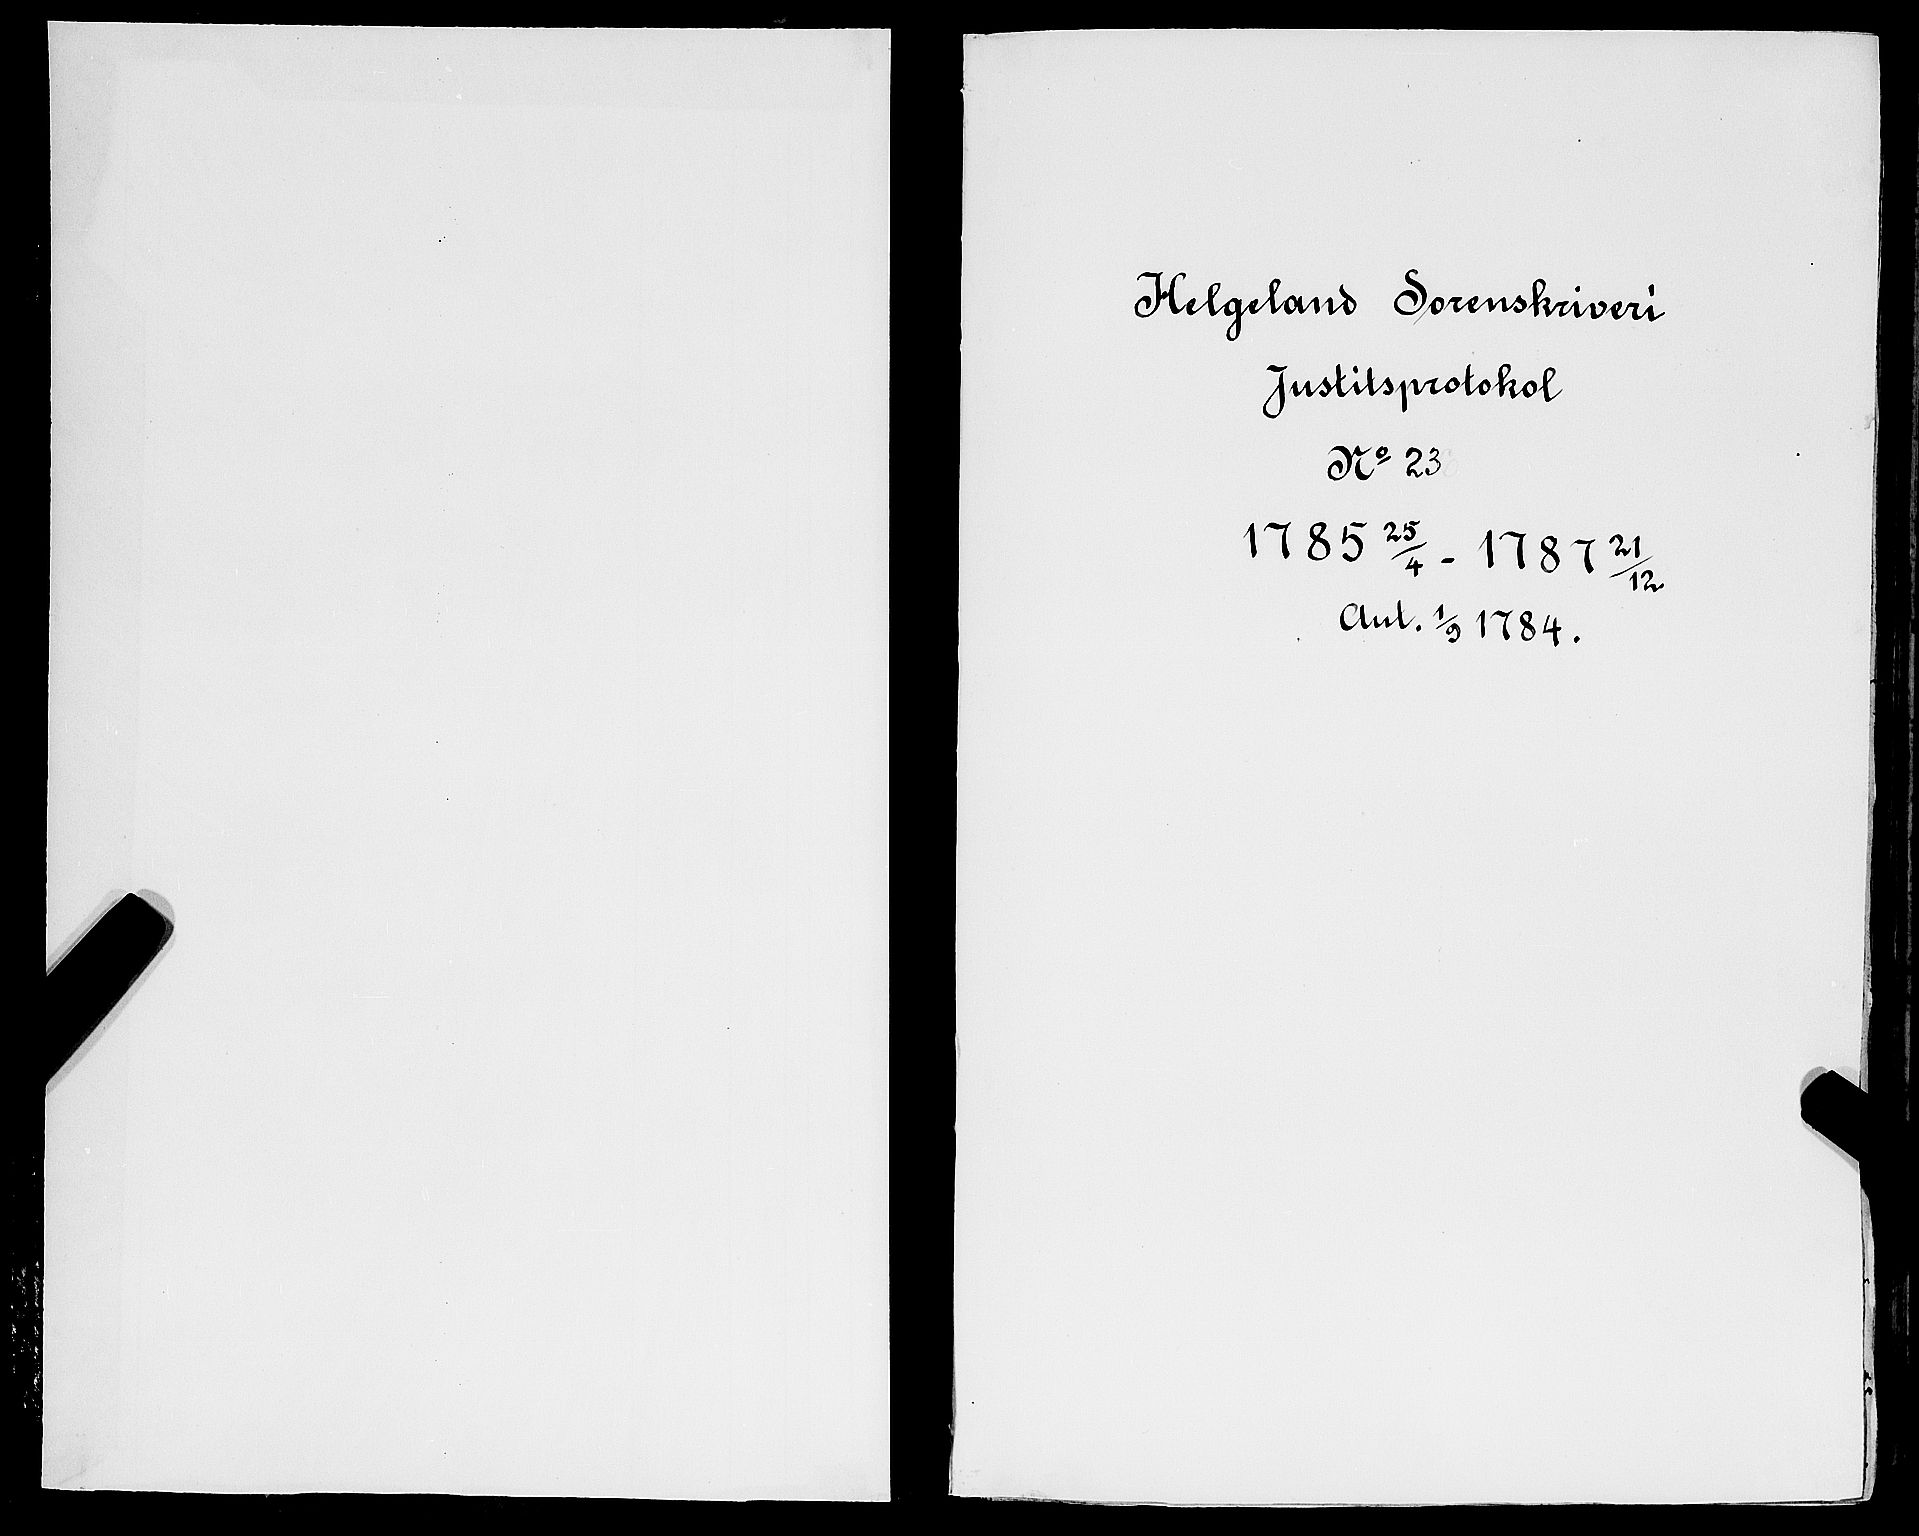 Helgeland Sorenskriveri
Justitsprotokol
Nº 23
1785 25/4 - 1787 21/12
Aut. 1/9 1784.